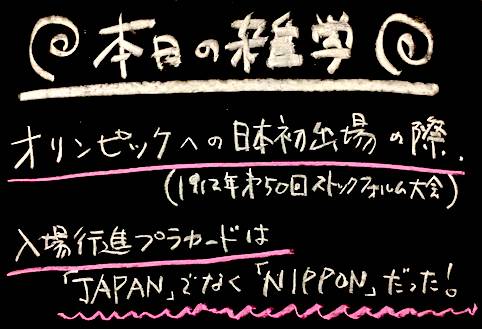 本日の雑学
オリンピックへの日本初出場の際、
(1912年第50回ストックフォルム大会)
入場行進プラカードは
「JAPAN」でなく「NIPPON」だった!